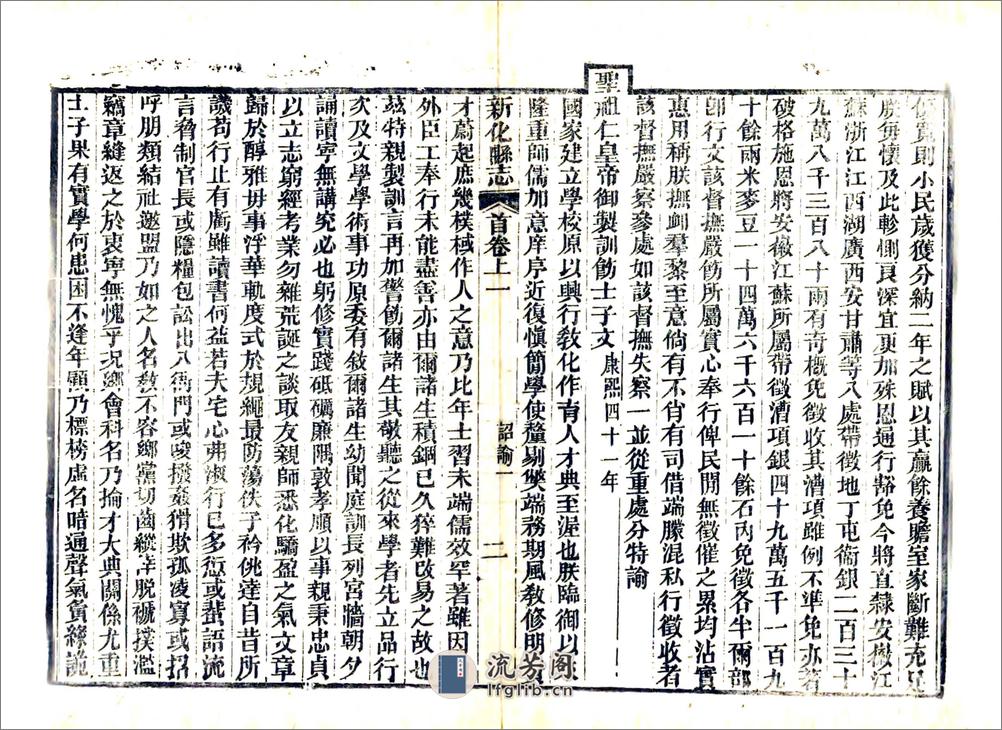 優寬則小民歲獲分納二年之賦以其贏餘養贍室家斷難充足
朕每懷及此軫惻良深宜更加殊恩通行豁免今將直隸安徽江
蘇浙江江西湖廣西安甘肅等八處帶徵地丁屯衞銀二百三十
九萬八千三百八十兩有奇概免徵收其漕項雖例不準免亦著
破格施恩將安徽江蘇所屬帶徵漕項銀四十九萬五千一百九
十餘兩米麥豆一十四萬六千六百一十餘石內免徵各半爾部
卽行文該督撫嚴飭所屬實心奉行俾民間無徵催之累均沾實
惠用稱朕撫卹羣黎至意倘有不肖有司借端朦混私行徵收者
該督撫嚴察參處如該督撫失察一並從重處分特諭
聖祖仁皇帝御製訓飭士子文 康熙四十一年
國家建立學校原以興行敎化作育人才典至渥也朕臨御以來
隆重師儒加意庠序近復愼簡學使釐剔獘端務期風敎修明
新化縣志 首卷上一 詔諭一 二
才蔚起庶幾棫樸作人之意乃比年士習未端儒效罕著雖因
外臣工奉行未能盡善亦由爾諸生積錮已久猝難改易之故也
茲特親製訓言再加警飭爾諸生其敬聽之從來學者先立品行
次及文學學術事功原委有敘爾諸生幼聞庭訓長列宮牆朝夕
誦讀寧無講究必也躬修實踐砥礪廉隅敦孝順以事親秉忠貞
以立志窮經考業勿雜荒誕之談取友親師悉化驕盈之氣文章
歸於醇雅毋事浮華軌度式於規繩最防蕩佚子衿佻達自昔所
譏苟行止有虧雖讀書何益若夫宅心弗淑行己多愆或蜚語流
言脅制官長或隱糧包訟出入衙門或唆撥姦猾欺孤凌寡或招
呼朋類結社邀盟乃如之人名敎不容鄉黨切齒縱幸脫褫撲濫
竊章縫返之於衷寧無愧乎況鄉會科名乃掄才大典關係尤重
士子果有實學何患困不逢年顧乃標榜虛名暗通聲氣夤緣詭
流芳阁
lfglib.cn